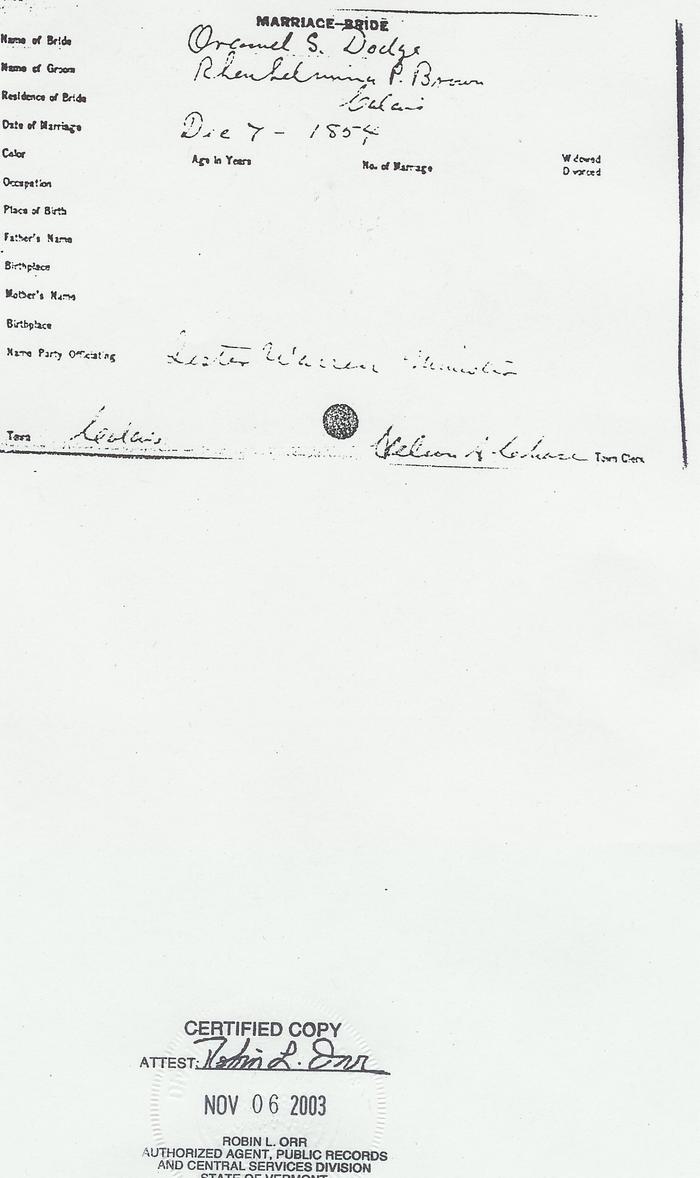 MARRIAGE—BRIDE
Name of Bride Oramel S. Dodge
Name of Groom P. Brown
Residence of Bride Calais
Date of Marriage Dec 7 - 1854
Color Age in Years No. of Marriage Widowed
Divorced
Occupation
Place of Birth
Father's Name
Birthplace
Mother's Name
Birthplace
Name Party Officiating Lester Warren Minister
Town Calais Nelson A. Chase Town Clerk
CERTIFIED COPY
ATTEST: Robin L. Orr
NOV 06 2003
ROBIN L. ORR
AUTHORIZED AGENT, PUBLIC RECORDS
AND CENTRAL SERVICES DIVISION
STATE OF VERMONT